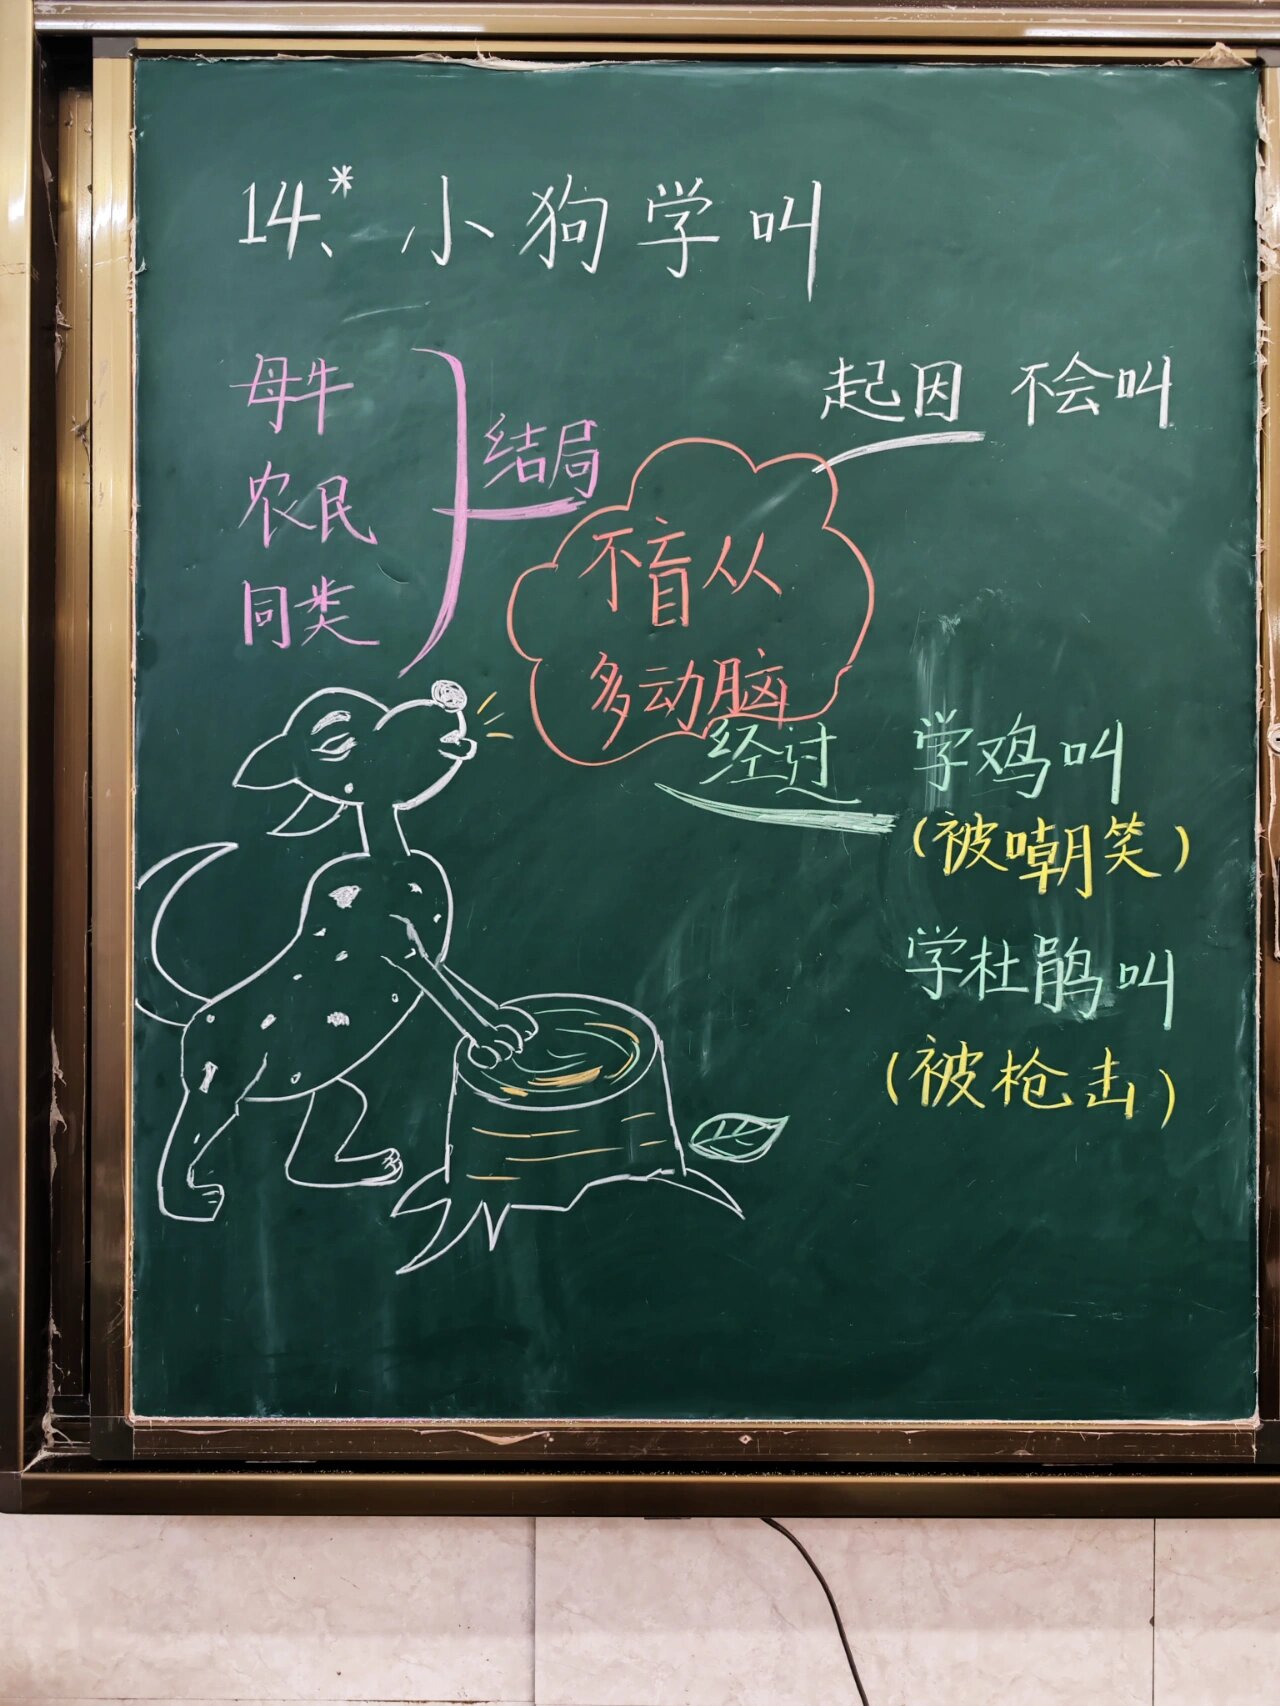 14.*、小狗学叫
母牛
农民
同类
结局
起因 不会叫
不盲从
多动脑
经过
学鸡叫
(被嘲笑)
学杜鹃叫
(被枪击)